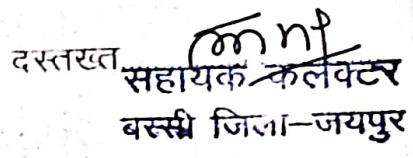 दस्तखत
सहायक कलेक्टर
बस्सी जिला-जयपुर